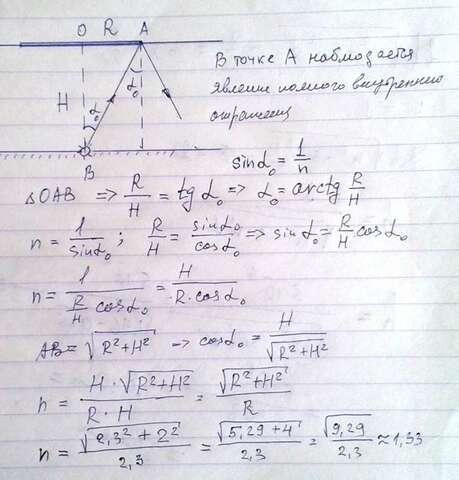 O R A
H
α₀ α₀
B
В точке А наблюдается
явление полного внутреннего
отражения
sin α₀ = 1/n
△OAB => R/H = tg α₀ => α₀ = arctg R/H
n = 1/sin α₀ ; R/H = sin α₀/cos α₀ => sin α₀ = R/H cos α₀
n = 1/(R/H cos α₀) = H/(R·cos α₀)
AB = √(R²+H²) -> cos α₀ = H/√(R²+H²)
n = (H·√(R²+H²))/(R·H) = √(R²+H²)/R
n = √(2,3²+2²)/2,3 = √(5,29+4)/2,3 = √9,29/2,3 ≈ 1,33